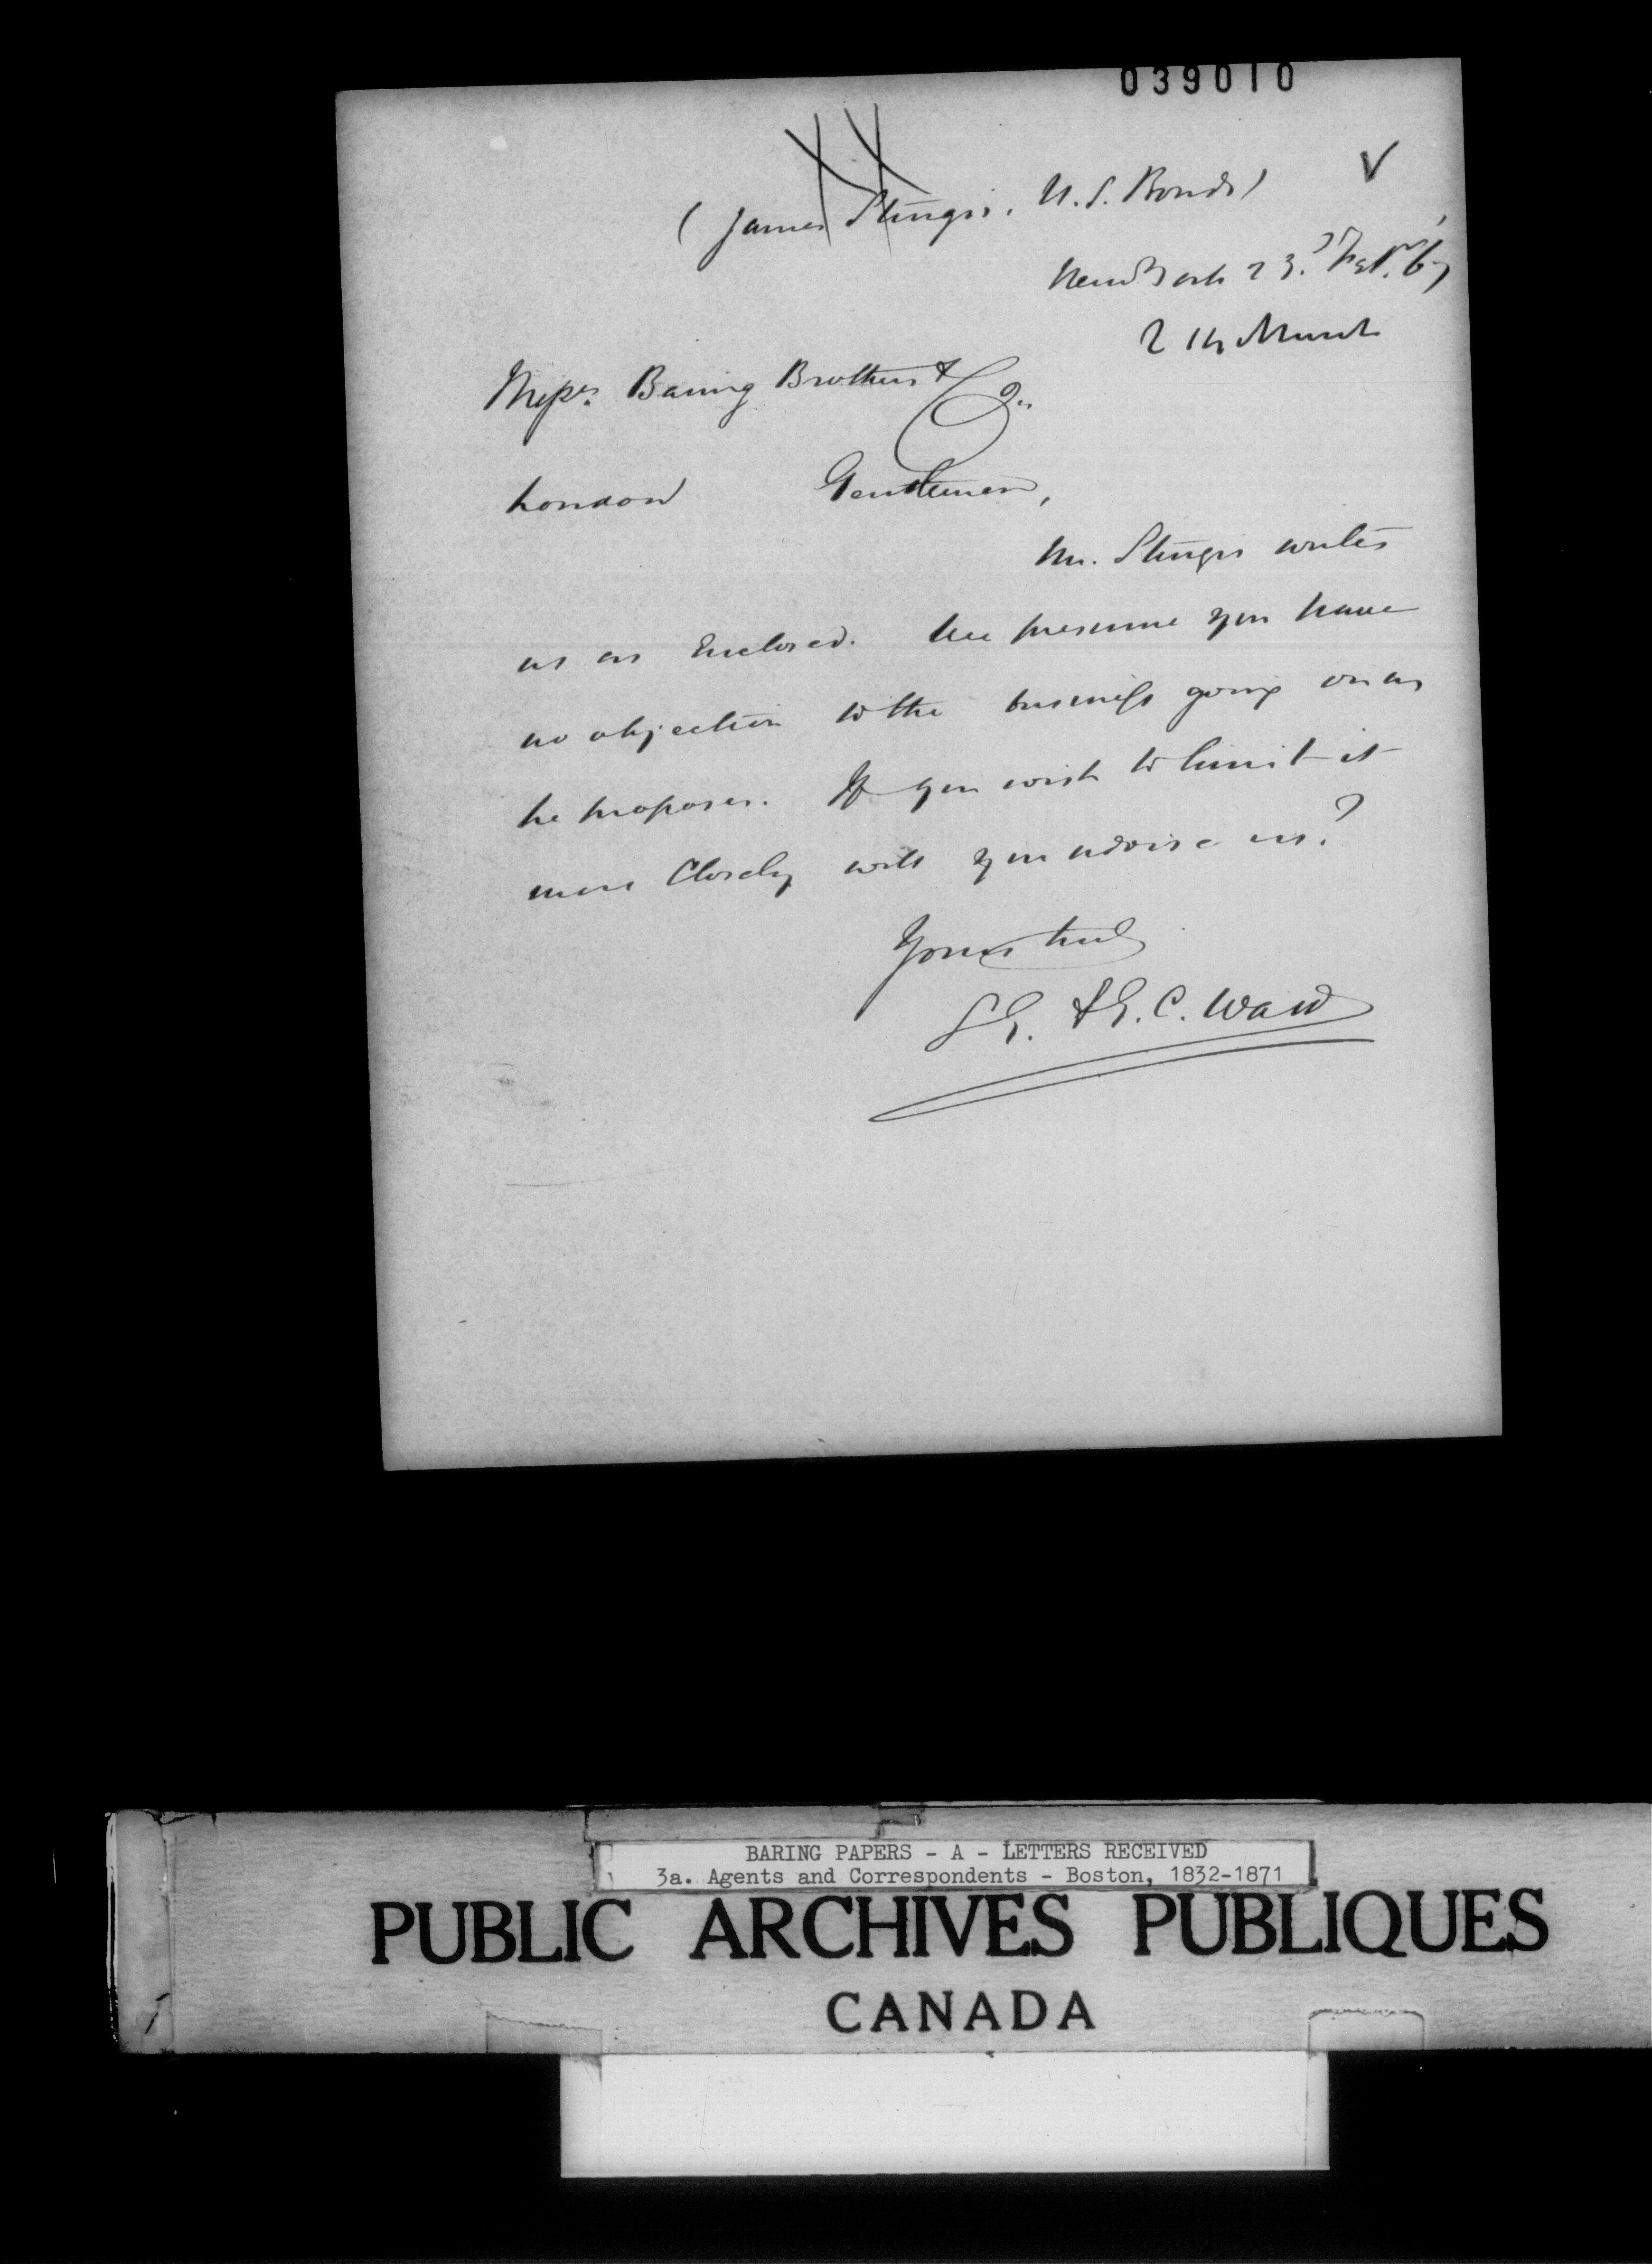 039010
(James Sturgis. U.S. Bonds)
New York 23. Feby. 67
R 14 March
Messrs. Baring Brothers & Co.
London Gentlemen,
Mr. Sturgis writes
us as Enclosed. We presume you have
no objection to the business going on as
he proposes. If you wish to limit it
more Closely will you advise us?
Yours truly
S.G. & G.C. Ward
BARING PAPERS - A - LETTERS RECEIVED
3a. Agents and Correspondents - Boston, 1832-1871
PUBLIC ARCHIVES PUBLIQUES
CANADA